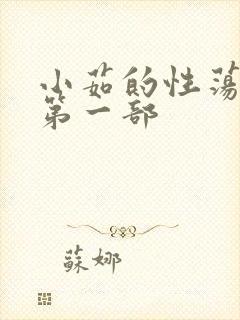 小茹的性蕩
第一部
蘇娜